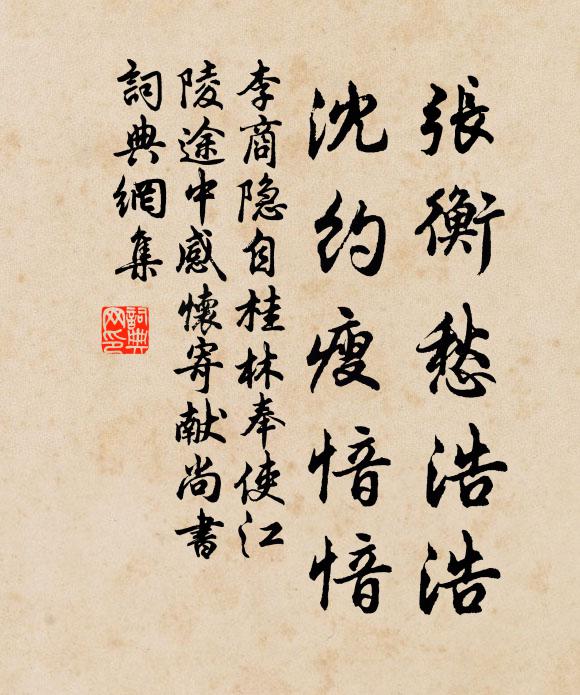 張衡愁浩浩
沈約瘦愔愔
李商隐自桂林奉使江
陵途中感懷寄献尚書
詞典網集
詞典网印